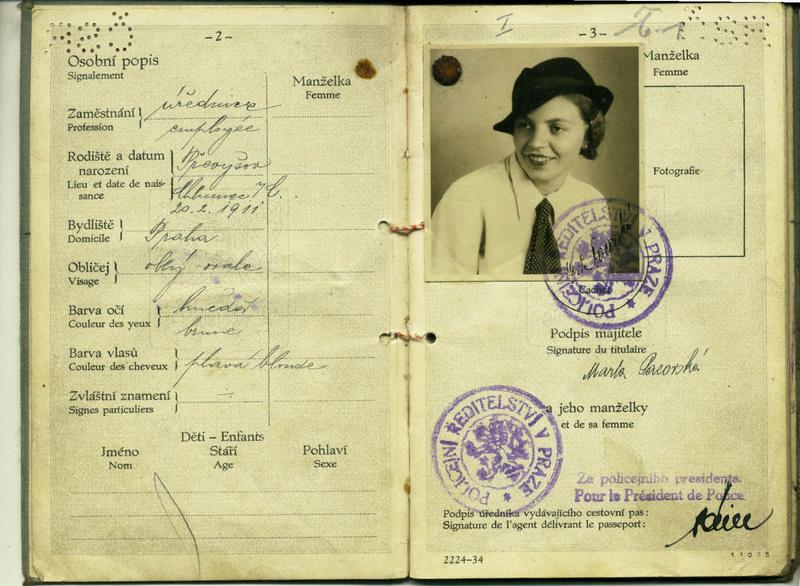 -2-
Osobní popis
Signalement
Manželka
Femme
Zaměstnání
Profession
úřednice
employée
Rodiště a datum
narození
Lieu et date de nais-
sance
Převýšov
Chlumec
20. 2. 1911
Bydliště
Domicile
Praha
Obličej
Visage
oblý ovale
Barva očí
Couleur des yeux
hnědá
brune
Barva vlasů
Couleur des cheveux
plavá blonde
Zvláštní znamení
Signes particuliers
—
Děti - Enfants
Jméno
Nom
Stáří
Age
Pohlaví
Sexe
I
-3-
Manželka
Femme
Fotografie
POLICEJNÍ ŘEDITELSTVÍ V PRAZE
Cachet
Podpis majitele
Signature du titulaire
Marta
a jeho manželky
et de sa femme
POLICEJNÍ ŘEDITELSTVÍ V PRAZE
Za policejního presidenta:
Pour le Président de Police
Podpis úředníka vydávajícího cestovní pas:
Signature de l'agent délivrant le passeport:
2224-34
11075